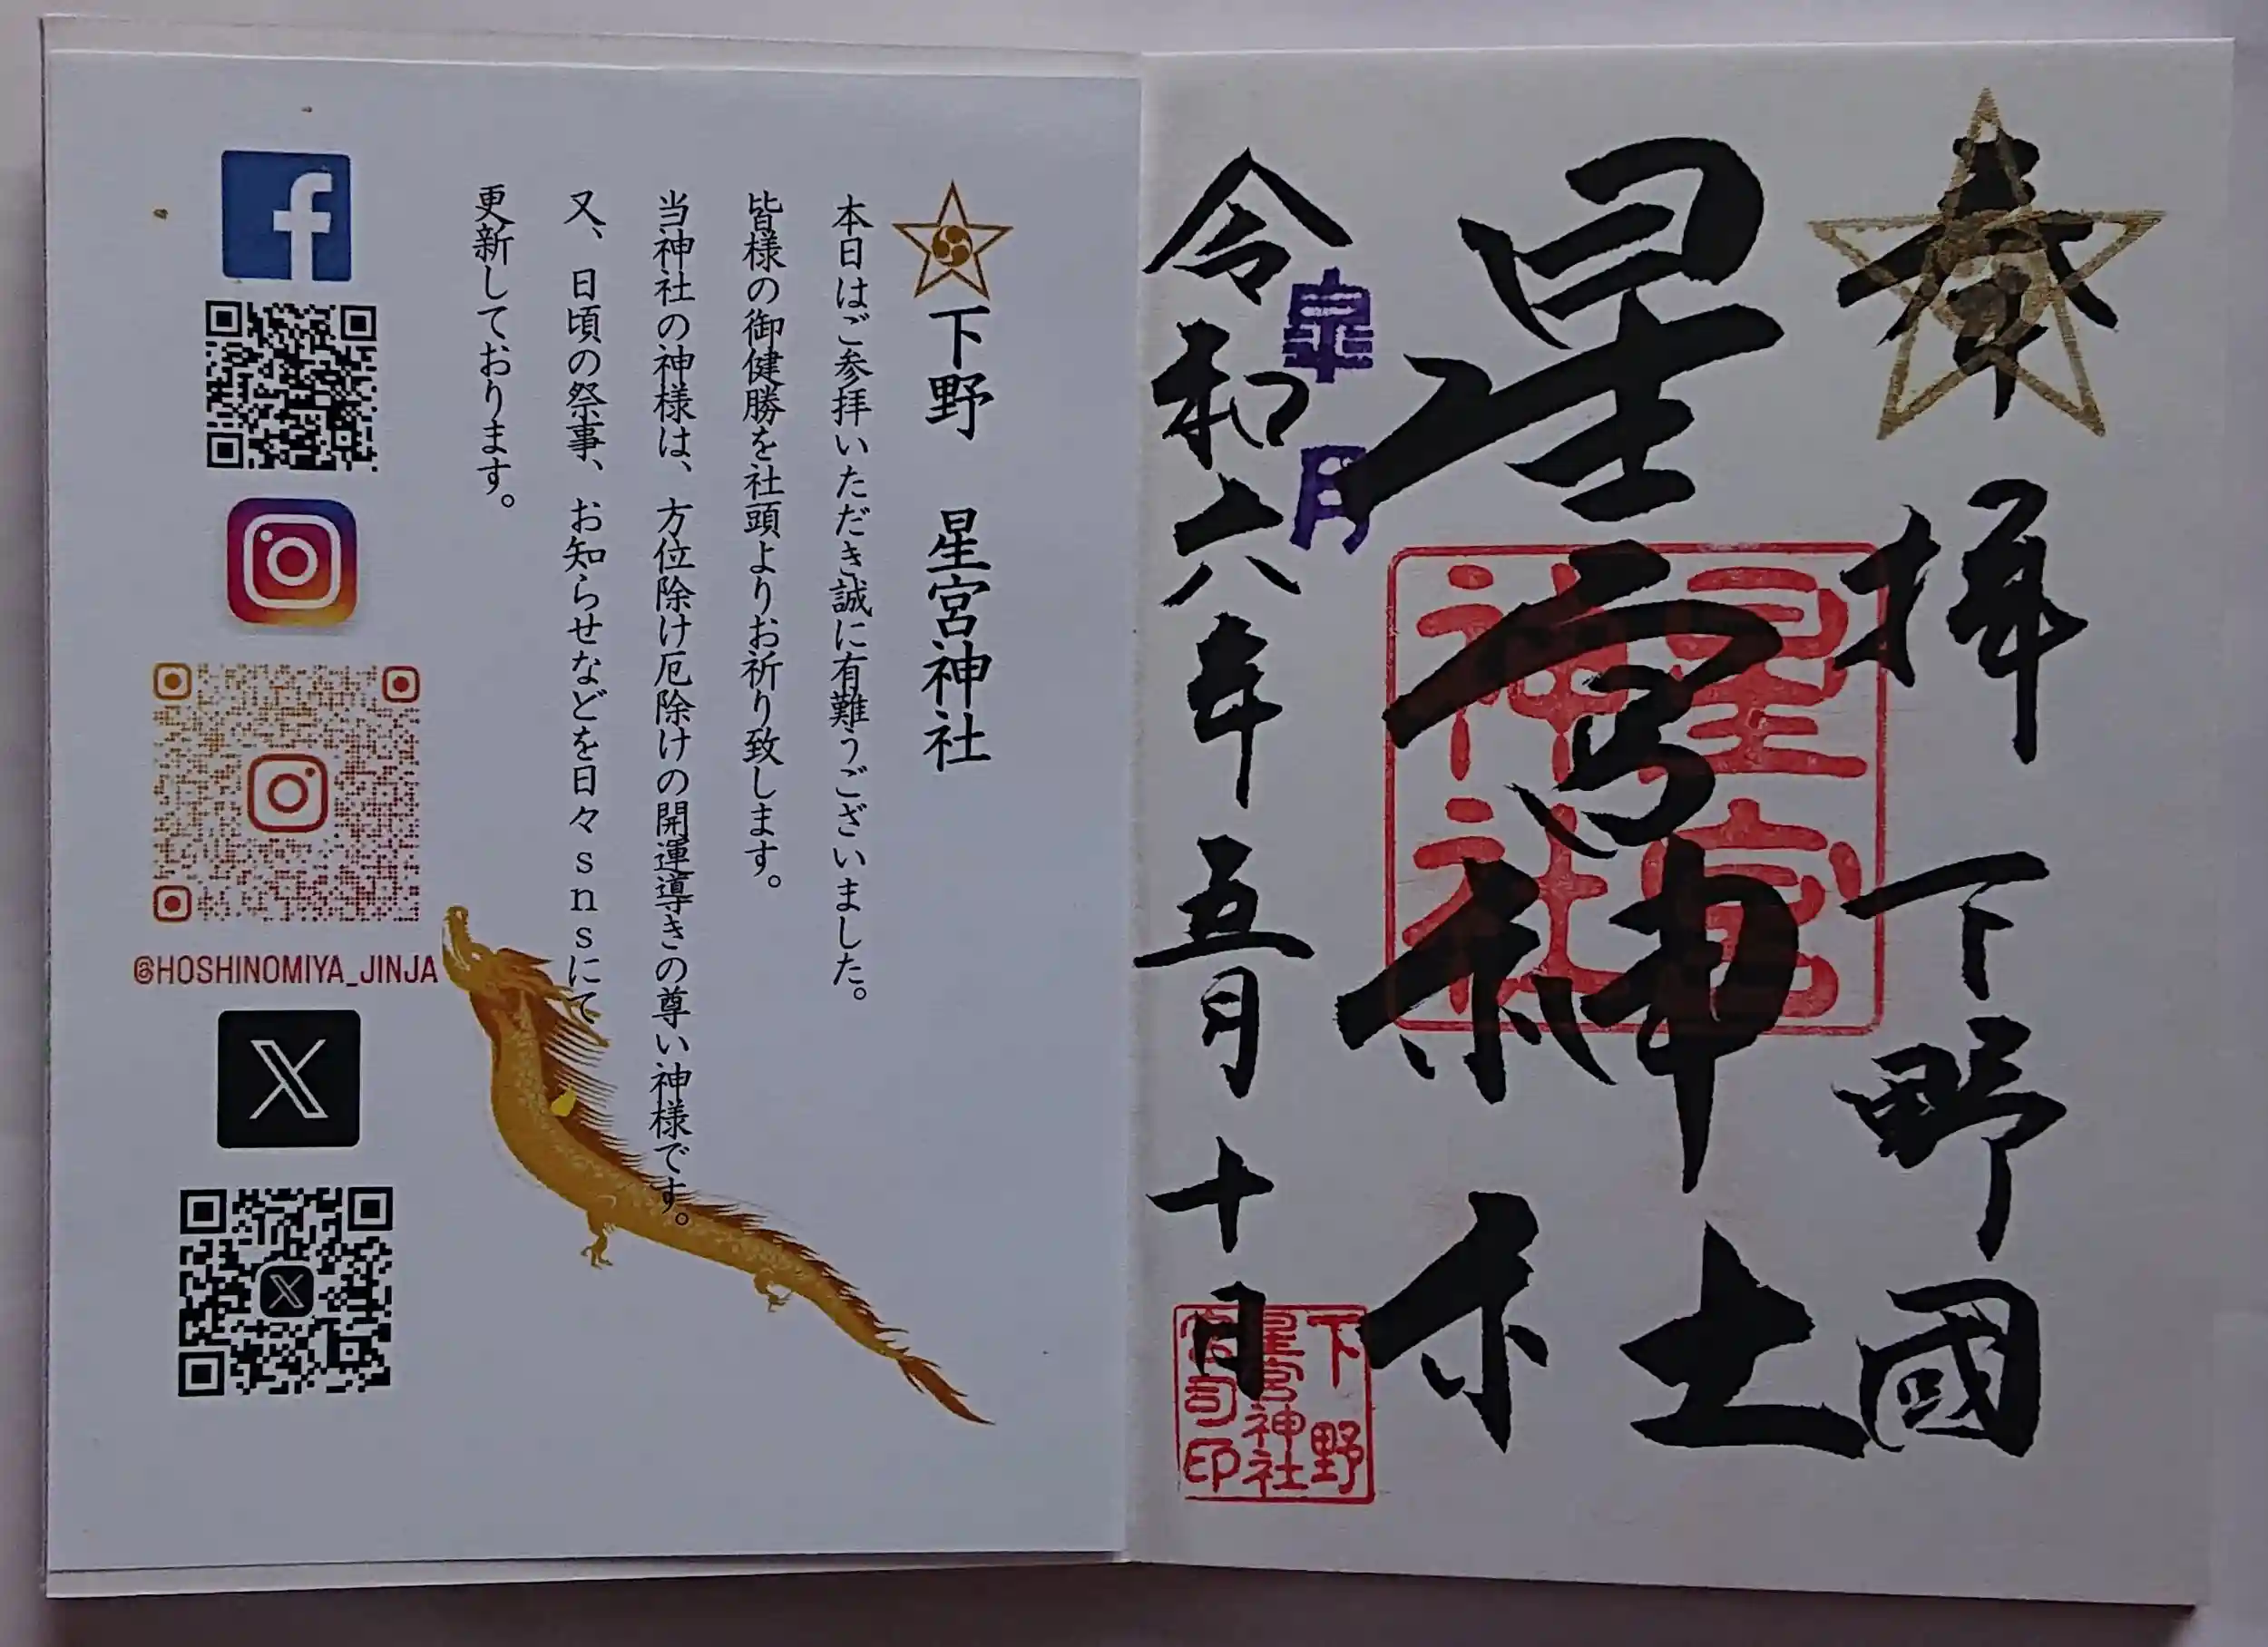 奉拝 下野國
星宮神社
星宮神社
皐月
令和六年五月十日
下野
星宮神社
宮司印
下野 星宮神社
本日はご参拝いただき誠に有難うございました。
皆様の御健勝を社頭よりお祈り致します。
当神社の神様は、方位除け厄除けの開運導きの尊い神様です。
又、日頃の祭事、お知らせなどを日々snsにて
更新しております。
@HOSHINOMIYA_JINJA